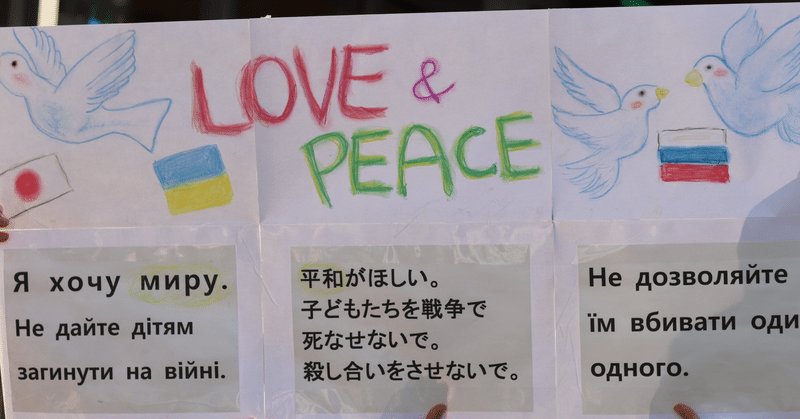 LOVE &
PEACE
Я хочу миру.
Не дайте дітям
загинути на війні.
平和がほしい。
子どもたちを戦争で
死なせないで。
殺し合いをさせないで。
Не дозволяйте
їм вбивати оди
одного.